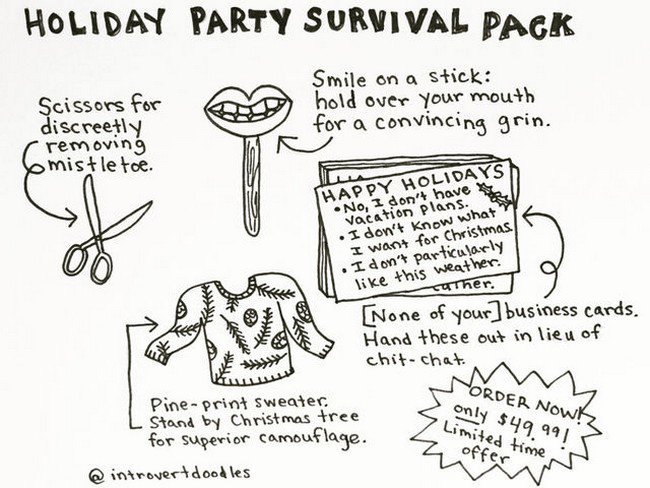 HOLIDAY PARTY SURVIVAL PACK
Scissors for
discreetly
removing
mistletoe.
Smile on a stick:
hold over your mouth
for a convincing grin.
HAPPY HOLIDAYS
• No, I don't have
vacation plans.
• I don't know what
I want for Christmas.
• I don't particularly
like this weather.
[None of your] business cards.
Hand these out in lieu of
chit-chat.
Pine-print sweater.
Stand by Christmas tree
for superior camouflage.
ORDER NOW!
only $49.99!
Limited time
offer
@introvertdoodles